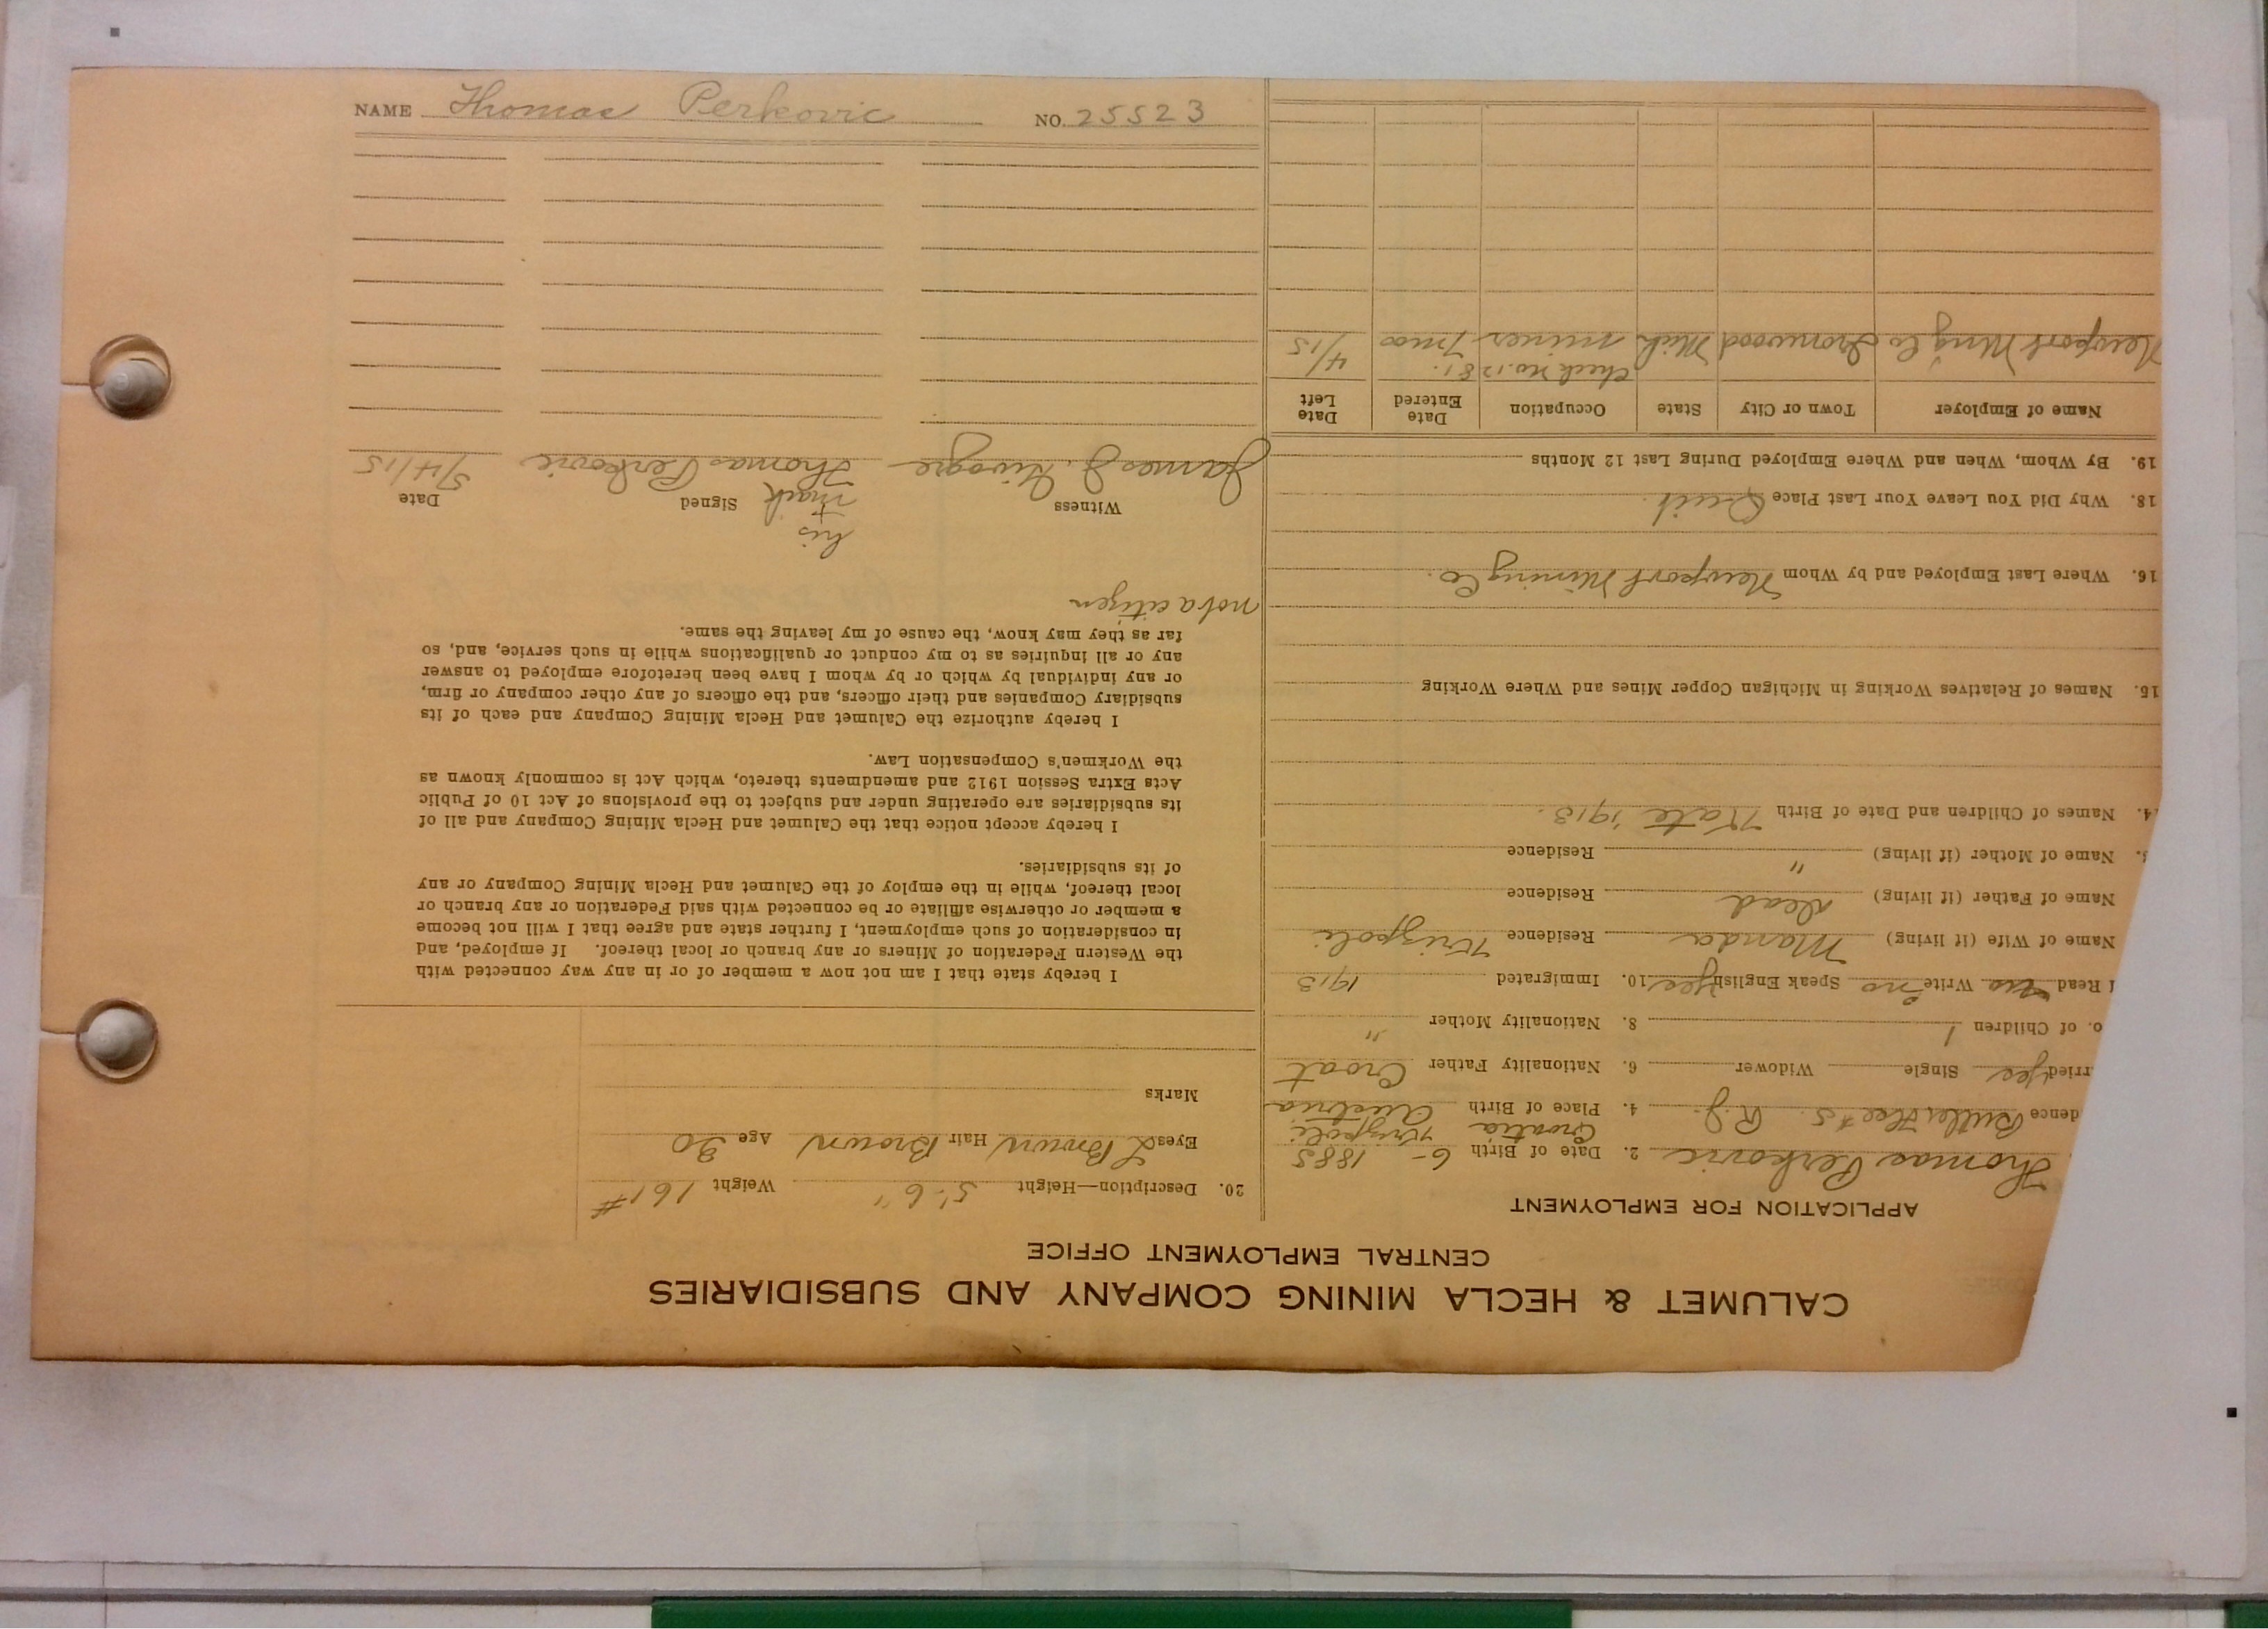 NAME Thomas Perkovic NO. 25523
CALUMET & HECLA MINING COMPANY AND SUBSIDIARIES
CENTRAL EMPLOYMENT OFFICE
APPLICATION FOR EMPLOYMENT
Thomas Perkovic 2. Date of Birth 6- 1885
dence Butler Hse #5. R.J. 4. Place of Birth Krizpoli Croatia Austria
rried yes Single Widower 6. Nationality Father Croat
o. of Children 1 8. Nationality Mother "
l Read no Write no Speak English yes 10. Immigrated 1913
Name of Wife (if living) Manda Residence Krizpoli
Name of Father (if living) dead Residence
3. Name of Mother (if living) " Residence
4. Names of Children and Date of Birth Kate 1913.
15. Names of Relatives Working in Michigan Copper Mines and Where Working
16. Where Last Employed and by Whom Newport Mining Co.
18. Why Did You Leave Your Last Place Quit.
19. By Whom, When and Where Employed During Last 12 Months
Name of Employer Town or City State Occupation Date Entered Date Left
Check no. 1281.
Newport Mng Co Ironwood Mich miner 7 mos 4/15
20. Description—Height 5'-6" Weight 161#
Eyes L Brown Hair Brown Age 30
Marks
I hereby state that I am not now a member of or in any way connected with
the Western Federation of Miners or any branch or local thereof. If employed, and
in consideration of such employment, I further state and agree that I will not become
a member or otherwise affiliate or be connected with said Federation or any branch or
local thereof, while in the employ of the Calumet and Hecla Mining Company or any
of its subsidiaries.
I hereby accept notice that the Calumet and Hecla Mining Company and all of
its subsidiaries are operating under and subject to the provisions of Act 10 of Public
Acts Extra Session 1912 and amendments thereto, which Act is commonly known as
the Workmen's Compensation Law.
I hereby authorize the Calumet and Hecla Mining Company and each of its
subsidiary Companies and their officers, and the officers of any other company or firm,
or any individual by which or by whom I have been heretofore employed to answer
any or all inquiries as to my conduct or qualifications while in such service, and, so
far as they may know, the cause of my leaving the same.
not a citizen
his
Witness + Signed Date
mark
James J. Thomas Perkovic 5/14/15